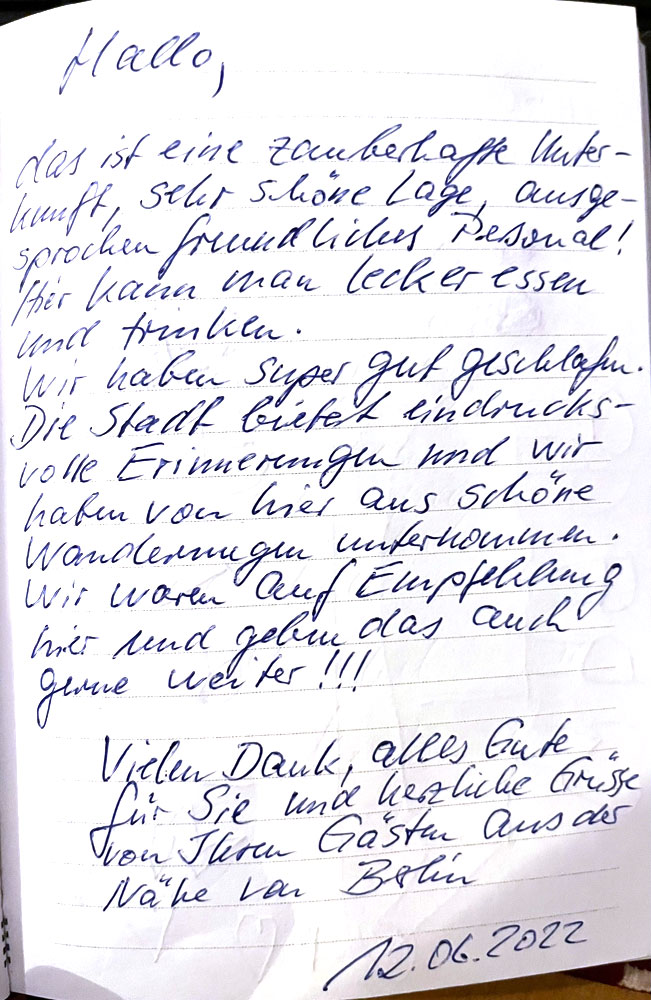 Hallo,
das ist eine zauberhafte Unter-
kunft, sehr schöne Lage, ausge-
sprochen freundliches Personal!
Hier kann man lecker essen
und trinken.
Wir haben super gut geschlafen.
Die Stadt bietet eindrucks-
volle Erinnerungen und wir
haben von hier aus schöne
Wanderungen unternommen.
Wir waren auf Empfehlung
hier und geben das auch
gerne weiter!!!
Vielen Dank, alles Gute
für Sie und herzliche Grüsse
von Ihren Gästen aus der
Nähe von Berlin
12.06.2022